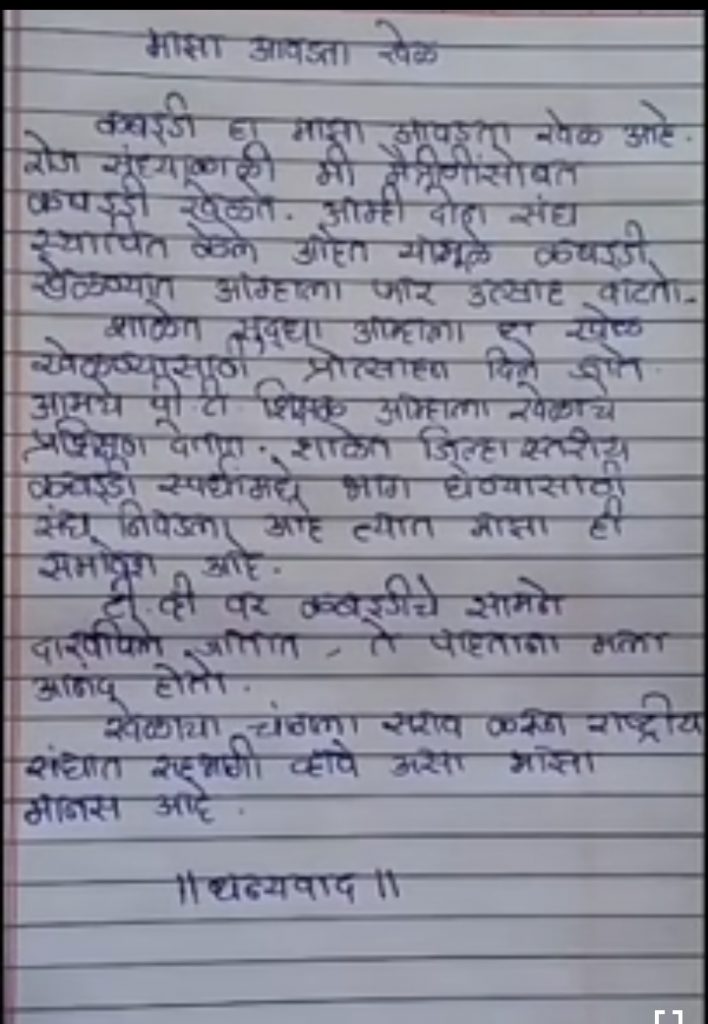 माझा आवडता खेळ
कबड्डी हा माझा आवडता खेळ आहे.
रोज संध्याकाळी मी मैत्रीणींसोबत
कबड्डी खेळते. आम्ही दोन संघ
स्थापित केले आहेत यामुळे कबड्डी
खेळण्यात आम्हाला फार उत्साह वाटतो.
शाळेत सुद्धा आम्हाला हा खेळ
खेळण्यासाठी प्रोत्साहन दिले जाते.
आमचे पी.टी. शिक्षक आम्हाला खेळाचे
प्रशिक्षण देतात. शाळेत जिल्हास्तरीय
कबड्डी स्पर्धांमध्ये भाग घेण्यासाठी
संघ निवडला आहे त्यात माझा ही
समावेश आहे.
टी.व्ही वर कबड्डीचे सामने
दाखविले जातात, ते पाहताना मला
आनंद होतो.
खेळाचा चांगला सराव करून राष्ट्रीय
संघात सहभागी व्हावे असा माझा
मानस आहे.
||धन्यवाद||